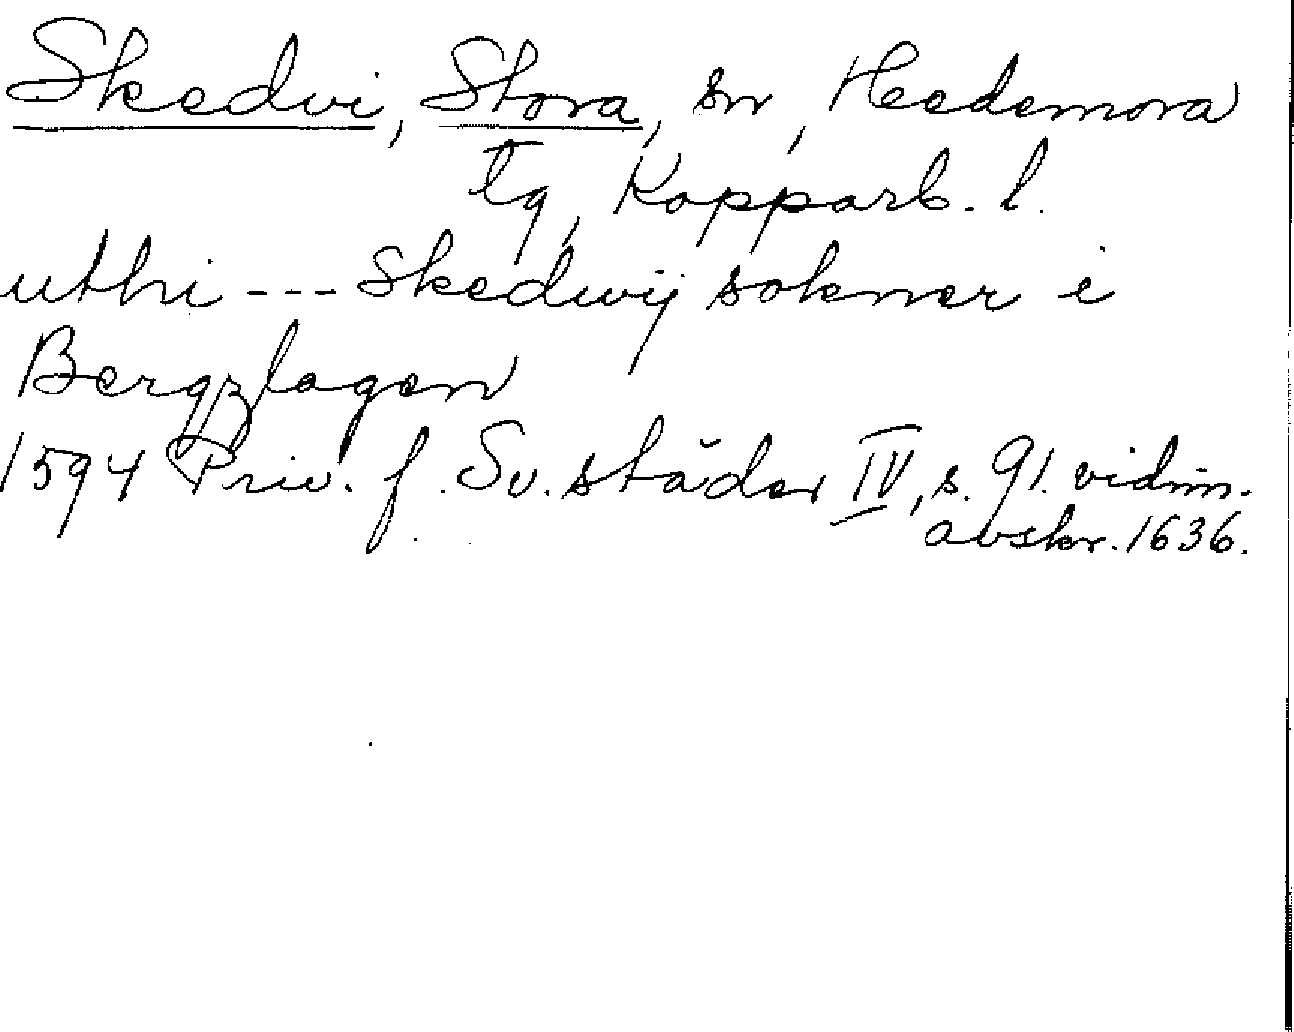 Skedvi, Stora, sn, Hedemora
tg, Kopparb. l.
uthi --- Skedwij soknar i
Bergzlagen
1594 Priv. f. Sv. städer IV, s. 91. vidim.
avskr. 1636.